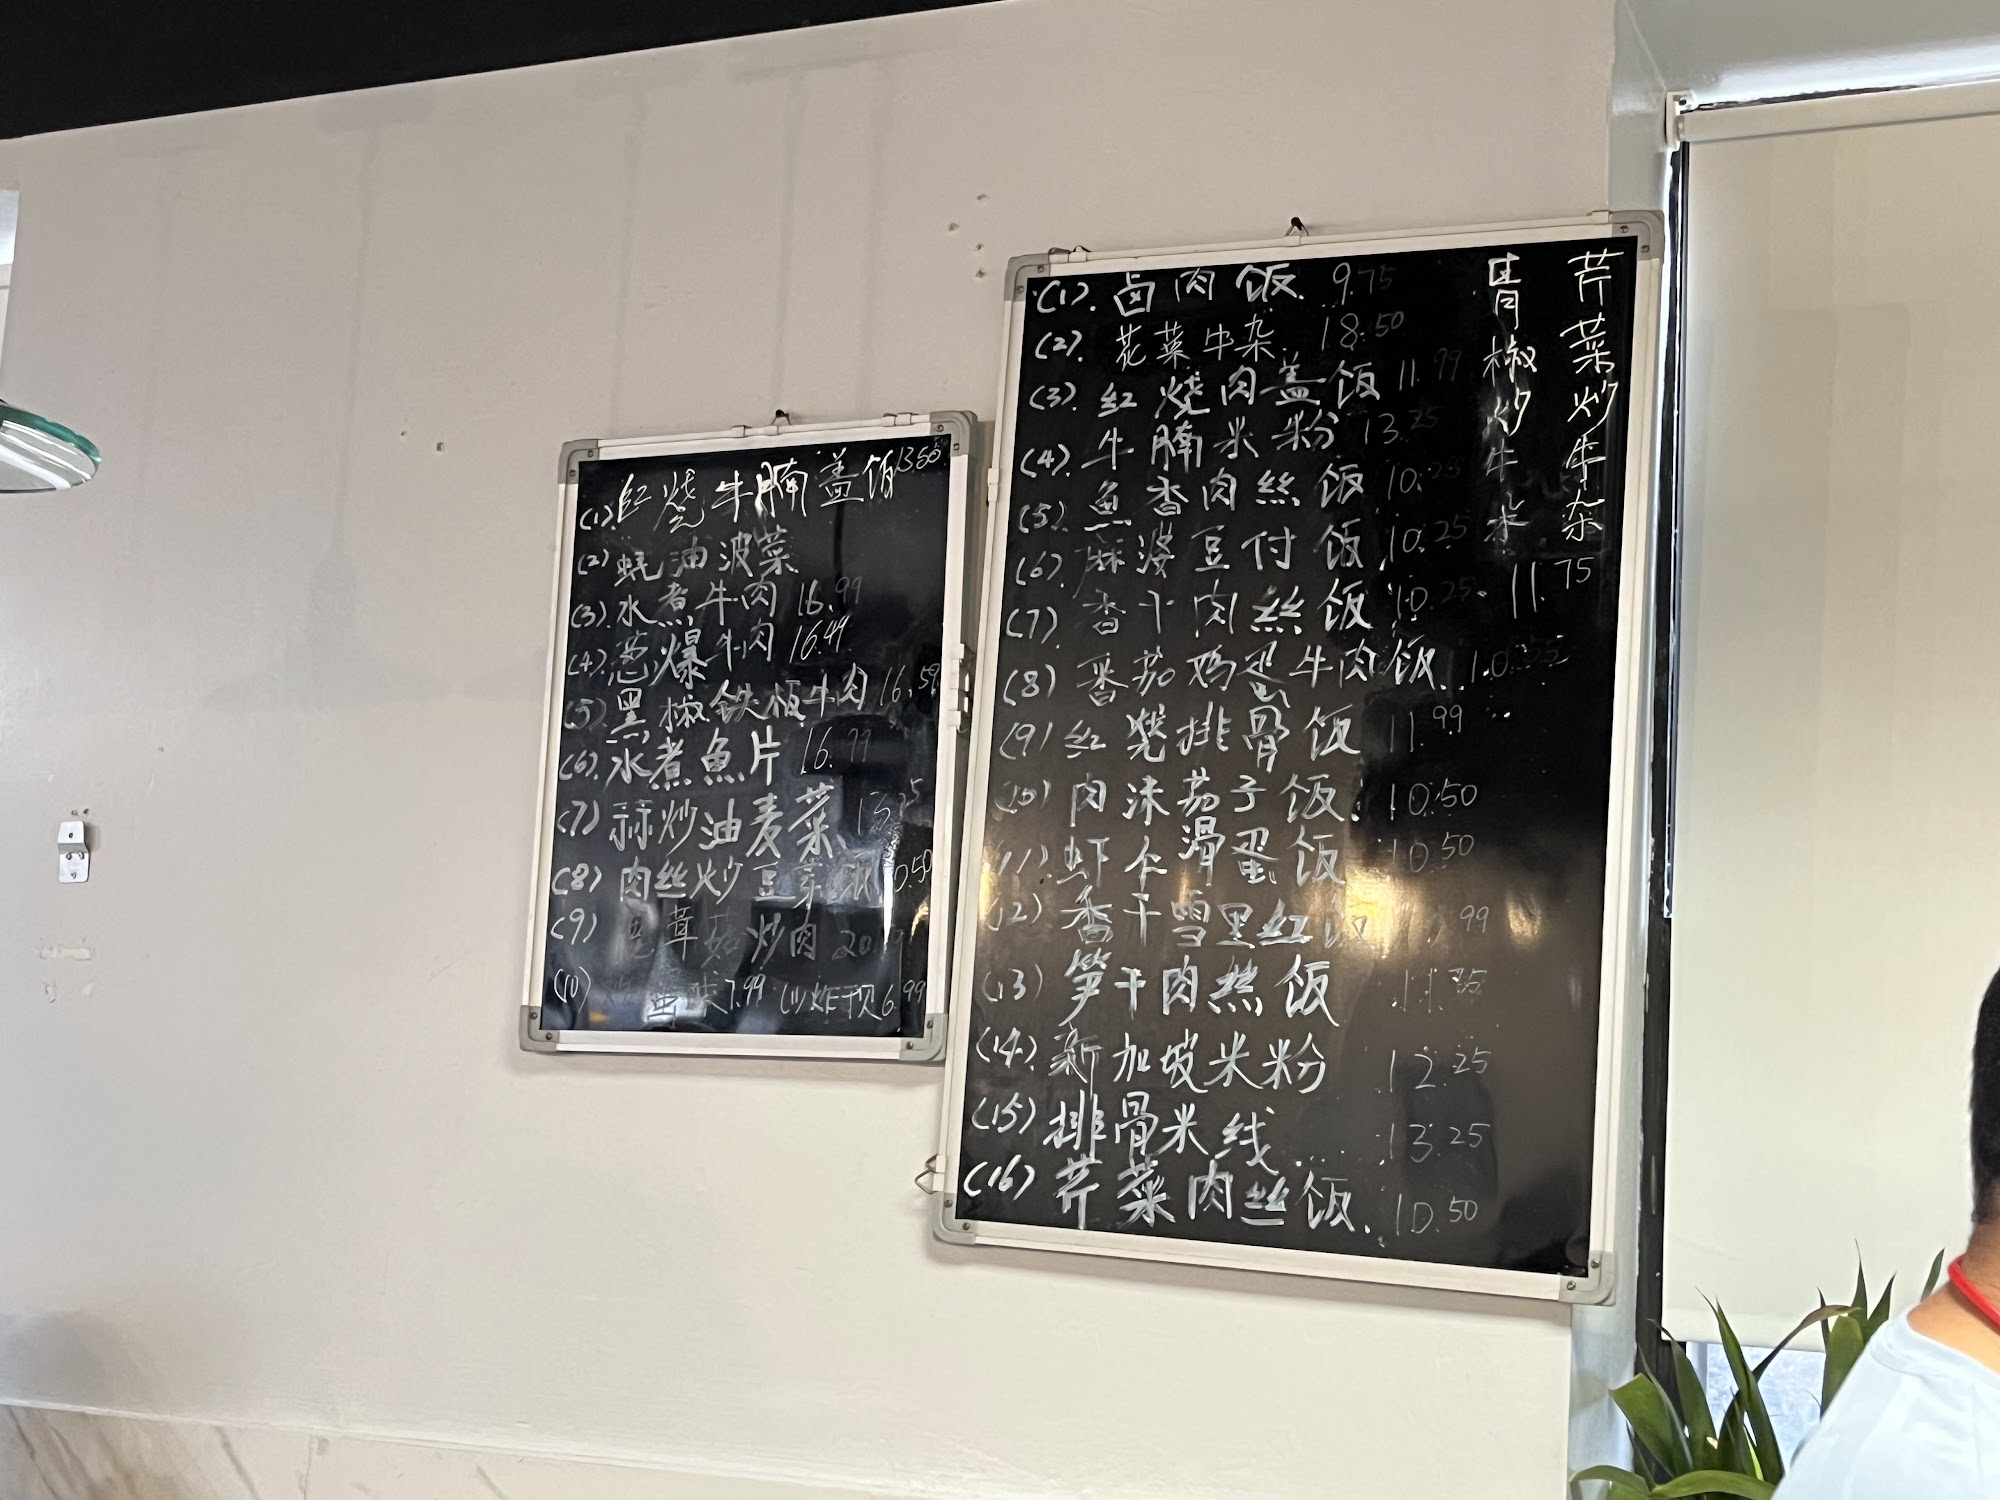 (1) 红烧牛腩盖饭 13.50
(2) 蚝油波菜
(3) 水煮牛肉 16.99
(4) 葱爆牛肉 16.49
(5) 黑椒铁板牛肉 16.59
(6) 水煮魚片 16.99
(7) 蒜炒油麦菜
(8) 肉丝炒豆芽
(9) 茸菇炒肉
(10) 7.99 炸 6.99
(1). 卤肉饭. 9.75
(2). 花菜牛杂. 18.50
(3). 红烧肉盖饭 11.99
(4). 牛腩米粉 13.25
(5). 魚香肉絲饭 10.25
(6). 麻婆豆付饭 10.25
(7) 香干肉絲饭 10.25
(8) 番茄鸡蛋牛肉饭.
(9) 红烧排骨饭 11.99
(10) 肉沫茄子饭. 10.50
(11) 虾仁滑蛋饭 10.50
(12) 香干雪里红饭
(13) 笋干肉絲饭
(14) 新加坡米粉 12.25
(15) 排骨米线 13.25
(16) 芹菜肉丝饭. 10.50
芹菜炒牛杂
青椒炒牛
11.75